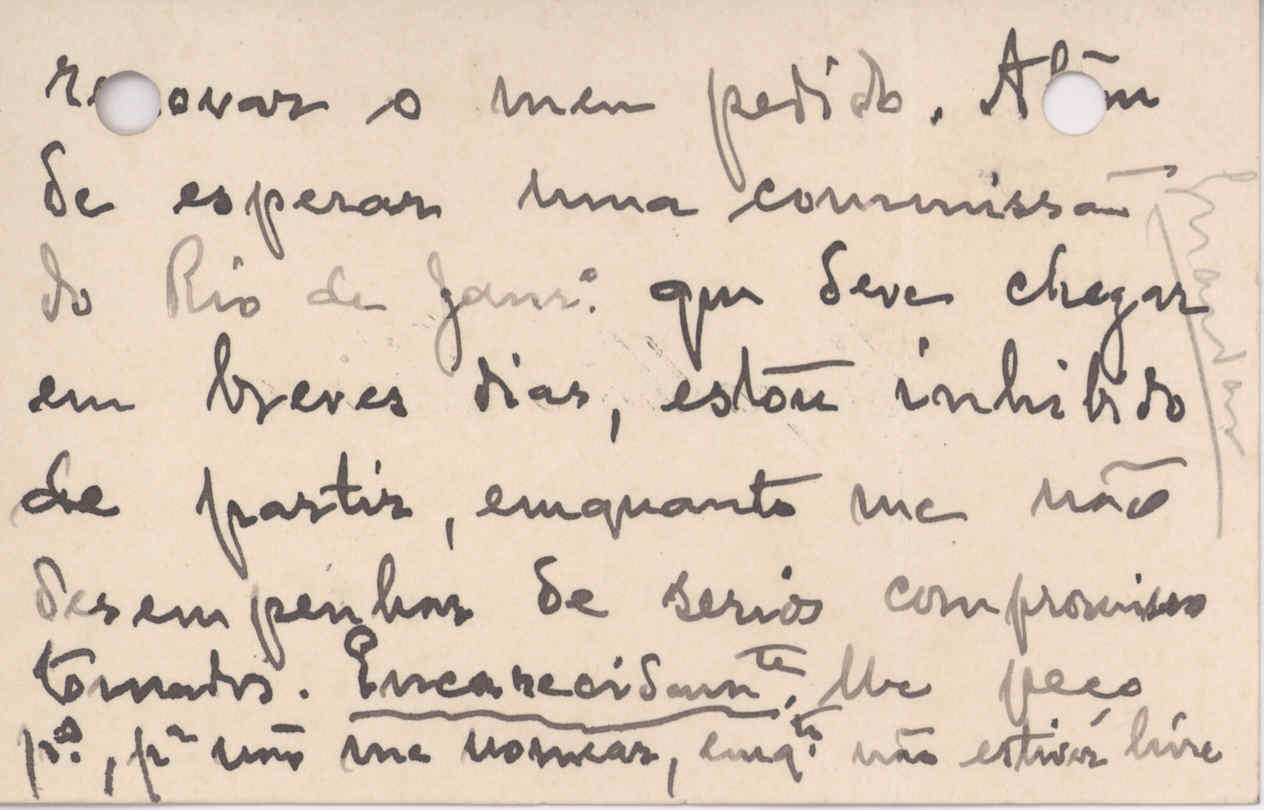 renovar o meu pedido. Além
de esperar uma commissão
do Rio de Janrº. que deve chegar
em breves dias, estou inhibido
de partir, emquanto me não
desempenhar de serios compromissos
tomados. Encarecidamte, lhe peço
ps., pª não me nomear, emqto não estivér livre